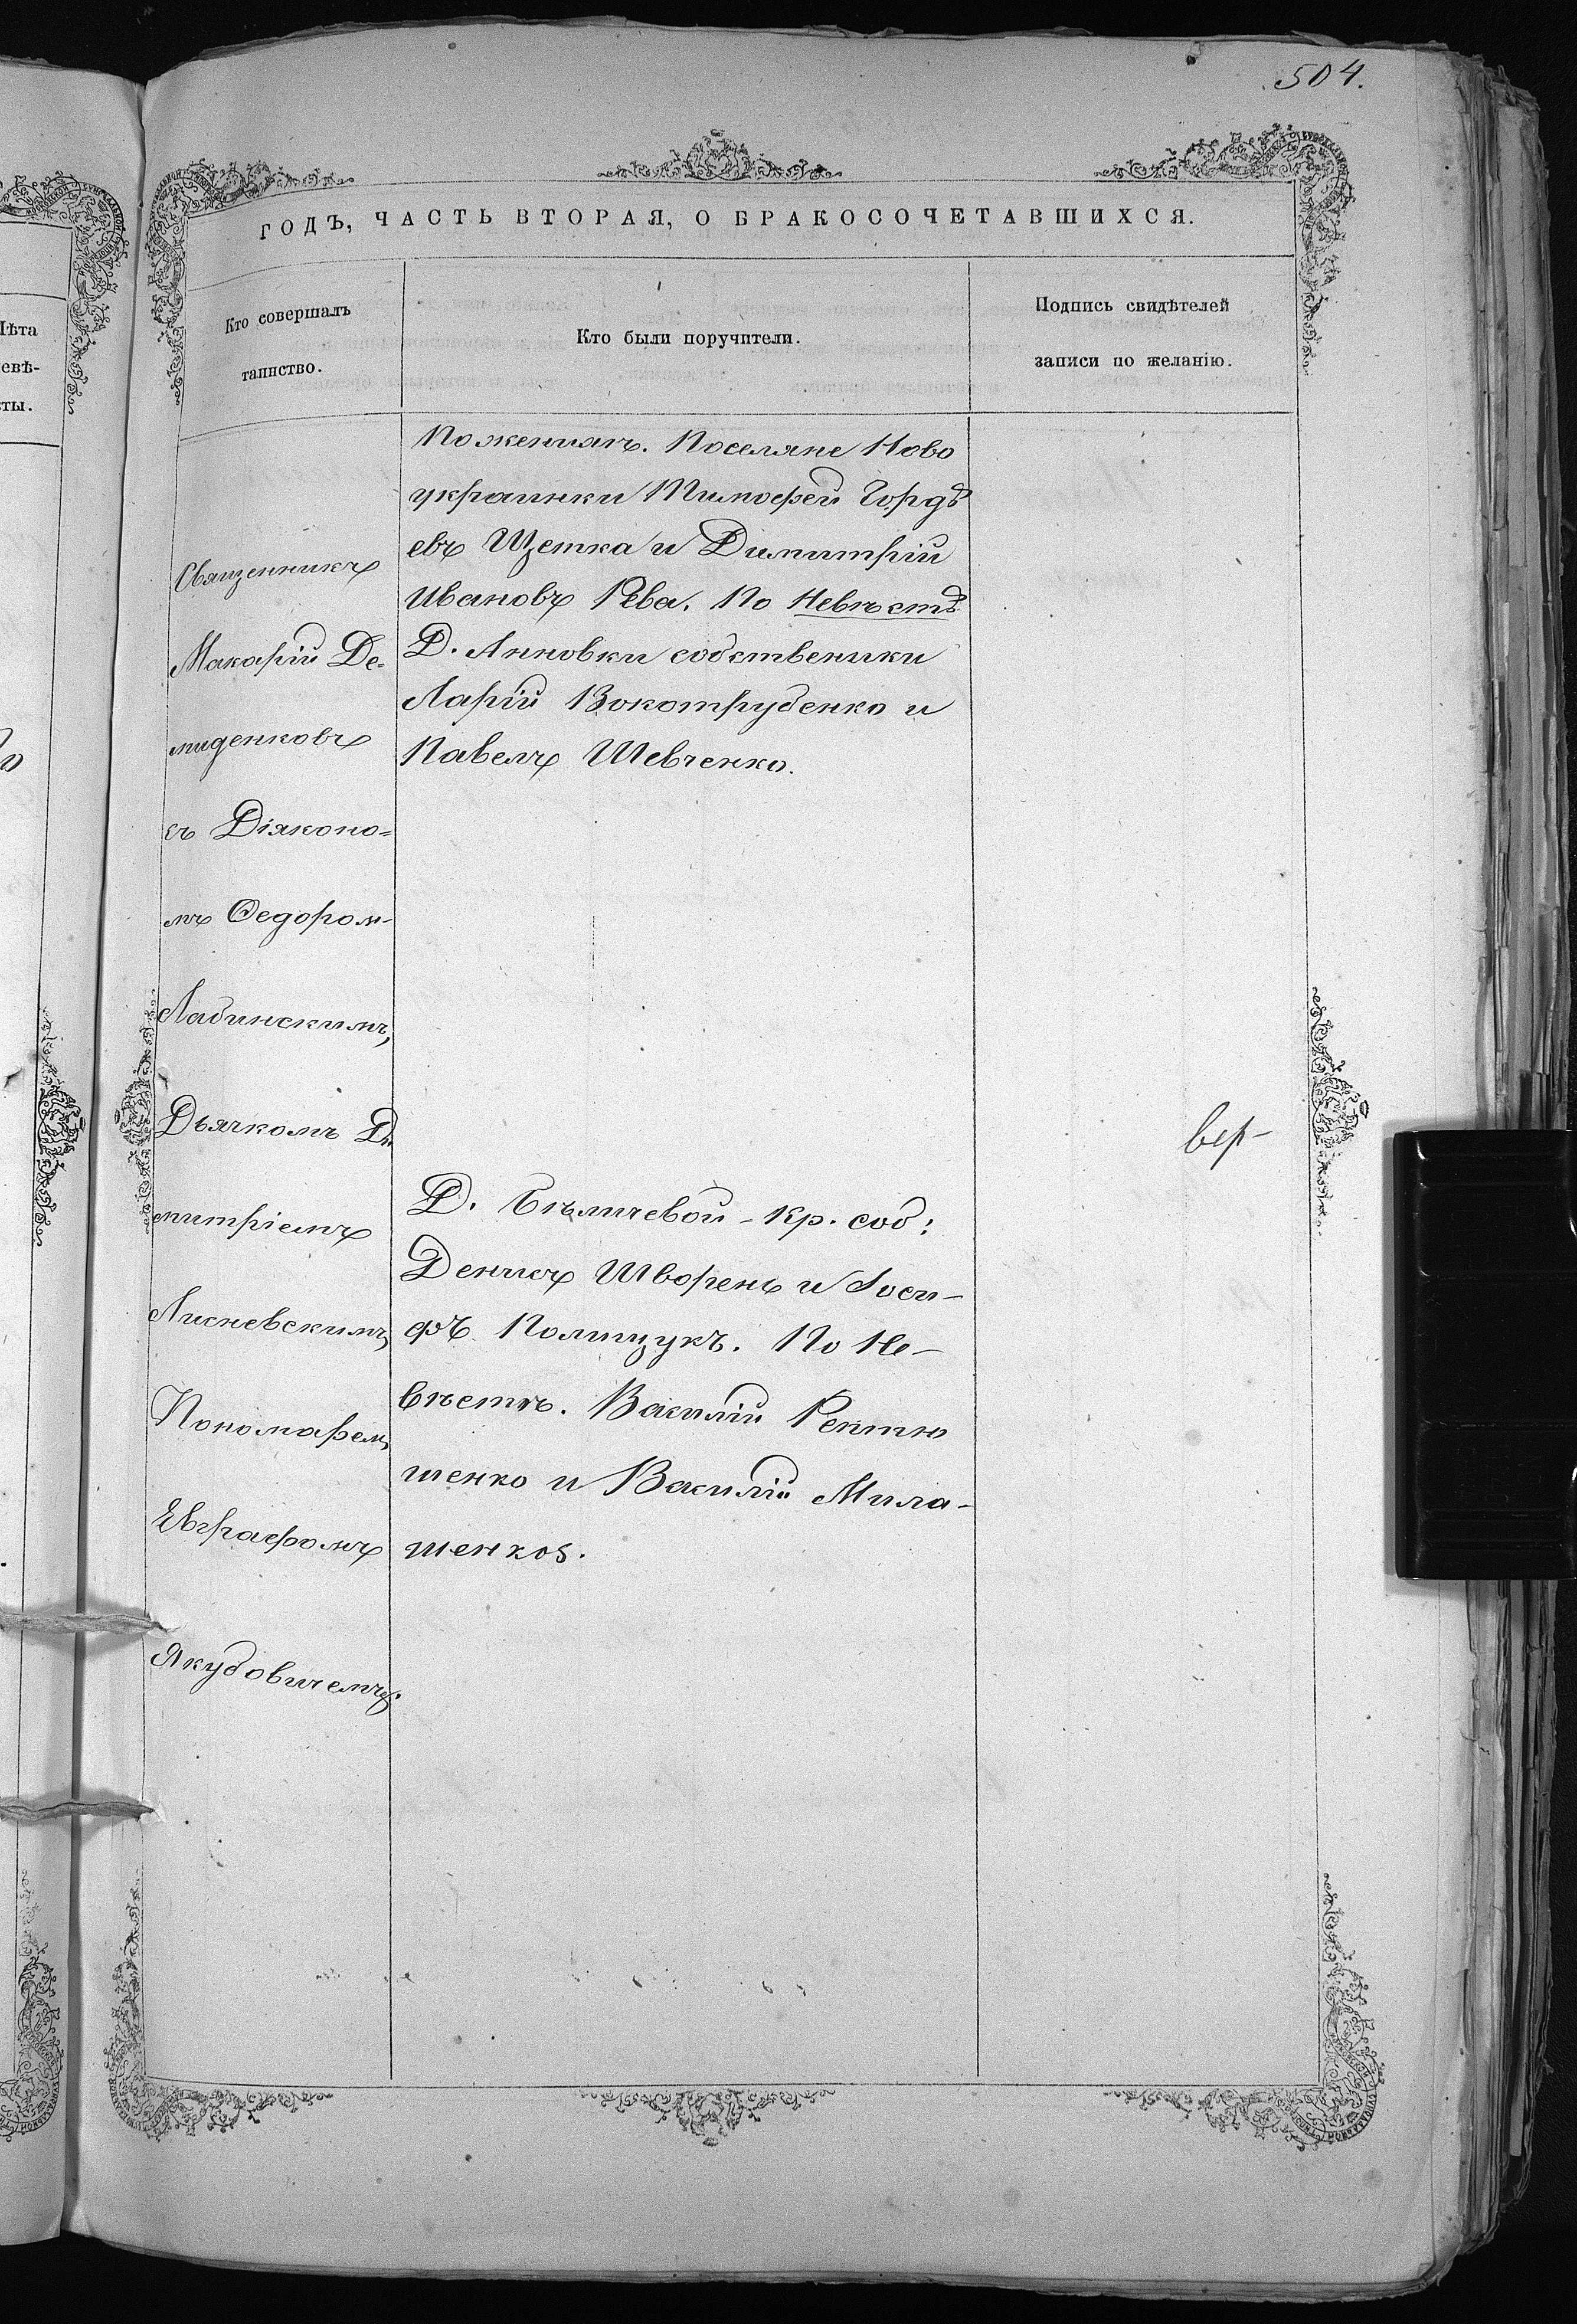 504.
ГОДЪ, ЧАСТЬ ВТОРАЯ, О БРАКОСОЧЕТАВШИХСЯ.
Кто совершалъ
таинство.
Кто были поручители.
Подпись свидѣтелей
записи по желанію.
Священникъ
Макарій Де-
миденковъ
съ Діяконо=
мъ Ѳедором-
Лабинскимъ,
Дьячкомъ Ди
митріемъ
Лисневскимъ,
Пономарем,
Евграфомъ
Якубовичемъ.
По женихѣ. Поселяне Ново
украинки Тимофей Гордѣ
евъ Щетка и Димитрій
Ивановъ Рева. По Невѣстѣ
Д. Анновки собственики
Ларій Вокотрубенко и
Павелъ Шевченко.
Д. Бѣличевой - кр. соб:
Денисъ Шворень и Іоси-
фъ Полищукъ. По Не-
вѣстѣ. Василій Рептю
шенко и Василій Мила-
шенко.
вер-